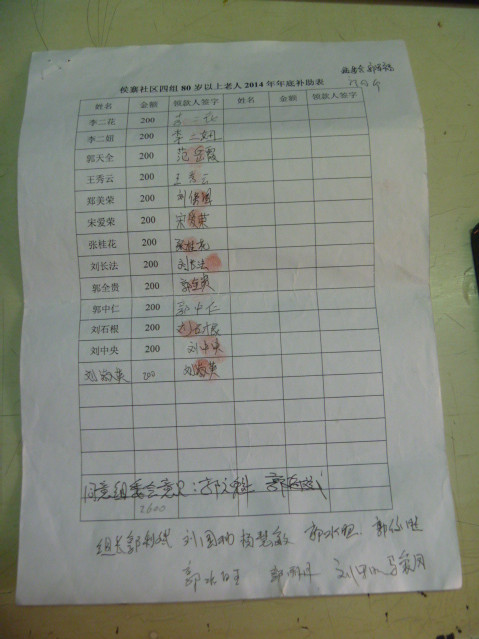 侯寨社区四组 80 岁以上老人 2014 年年底补助表
姓名 金额 领款人签字 姓名 金额 领款人签字
李二花 200
李二妞 200 李二妞
郭天全 200 范岳霞
王秀云 200 王秀云
郑美荣 200 刘俊
宋爱荣 200 宋爱荣
张桂花 200 张桂花
刘长法 200 刘长法
郭全贵 200 郭全贵
郭中仁 200 郭中仁
刘石根 200 刘石根
刘中央 200 刘中央
刘淑英 200 刘淑英
同意组委会意见：郭
2600
组长郭 刘国 杨慧敏 郭水
郭水 刘